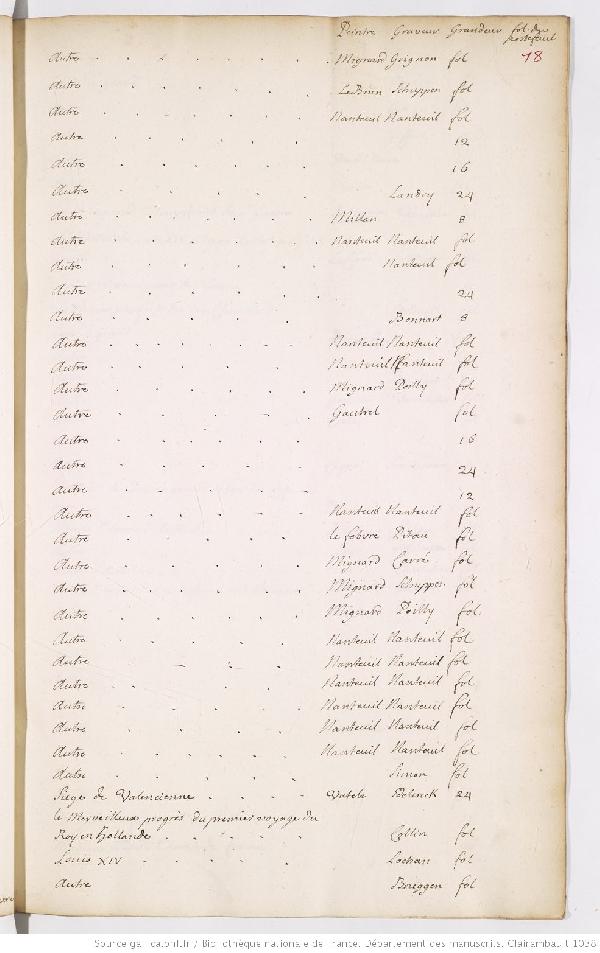 Peintre Graveur Grandeur fol. du
portefeuil
Autre Mignard Grignon fol 78
Autre LeBrun Schuppen fol
Autre Nanteuil Nanteuil fol
Autre 12
Autre 16
Autre Landry 24
Autre Millan 8
Autre Nanteuil Nanteuil fol
Autre Nanteuil fol
Autre 24
Autre Bonnart 8
Autre Nanteuil Nanteuil fol
Autre Nanteuil Nanteuil fol
Autre Mignard Poilly fol
Autre Gautrel fol
Autre 16
Autre 24
Autre 12
Autre Nanteuil Nanteuil fol
Autre le febvre Pitau fol
Autre Mignard Carré fol
Autre Mignard Schuppen fol
Autre Mignard Poilly fol.
Autre Nanteuil Nanteuil fol
Autre Nanteuil Nanteuil fol
Autre Nanteuil Nanteuil fol
Autre Nanteuil Nanteuil fol
Autre Nanteuil Nanteuil fol
Autre Nanteuil Nanteuil fol
Autre Simon fol
Siege de Valencienne 24
le Merveilleux progrés du premier voyage du
Roy en hollande Collin fol
Louis XIV Lochan fol
Autre Breggen fol
Source gallica.bnf.fr / Bibliothèque nationale de France. Département des manuscrits. Clairambault 1038